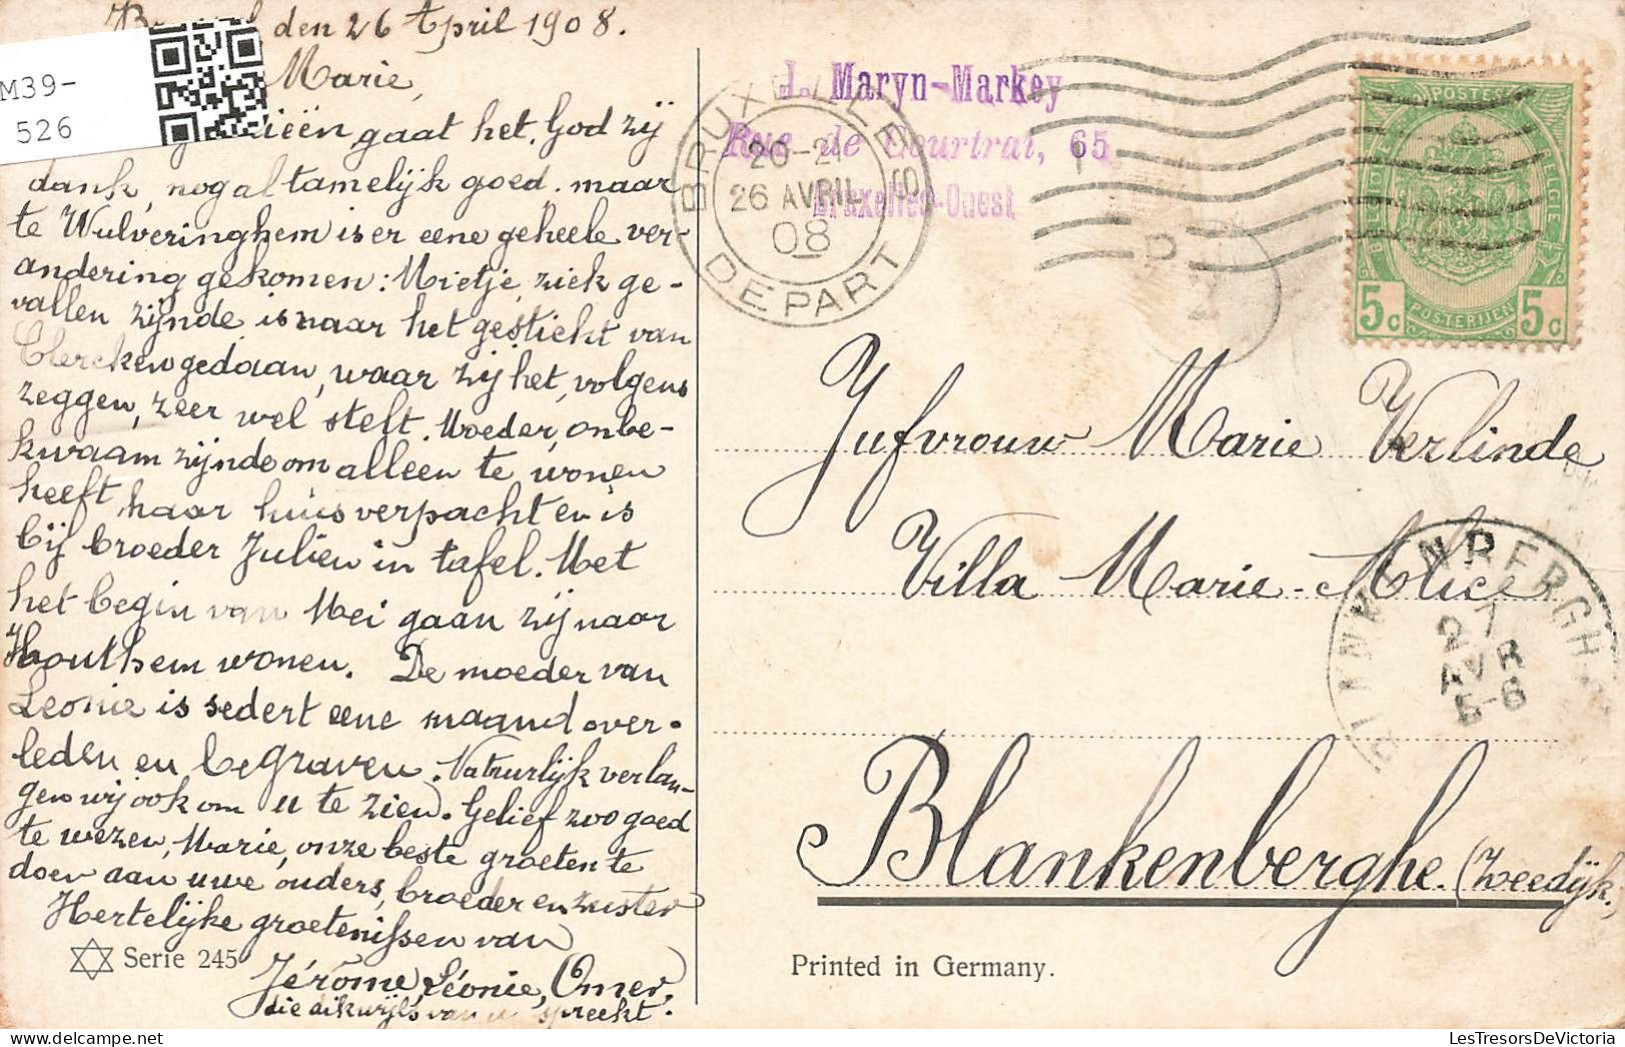 den 26 April 1908.
Marie,
gaat het, God zij
dank, nog al tamelijk goed. maar
te Wulveringhem is er eene geheele ver-
andering gekomen: Mietje, ziek ge-
vallen zijnde is naar het gesticht van
Clercken gedaan, waar zij het, volgens
zeggen, zeer wel stelt. Moeder, onbe-
kwaam zijnde om alleen te wonen
heeft haar huis verpacht en is
bij broeder Julien in tafel. Met
het begin van Mei gaan zij naar
Houthem wonen. De moeder van
Leonie is sedert eene maand over-
leden en begraven. Natuurlijk verlan-
gen wij ook om u te zien. Gelief zoo goed
te wezen, Marie, onze beste groeten te
doen aan uwe ouders, broeder en zuster
Hertelijke groetenissen van
Jérôme, Léonie, Omer,
die dikwijls van u spreekt.
Serie 245
M39-
526
J. Maryn-Markey
Rue de Courtrai, 65
Bruxelles-Ouest
BRUXELLES
20-21
26 AVRIL
08
DEPART
POSTES
BELGIQUE
BELGIE
POSTERIJEN
5c 5c
Jufvrouw Marie Verlinde
Villa Marie-Alice
Blankenberghe. (Zeedijk.)
BLANKENBERGHE
27
AVR
5-6
Printed in Germany.
LesTresorsDeVictoria